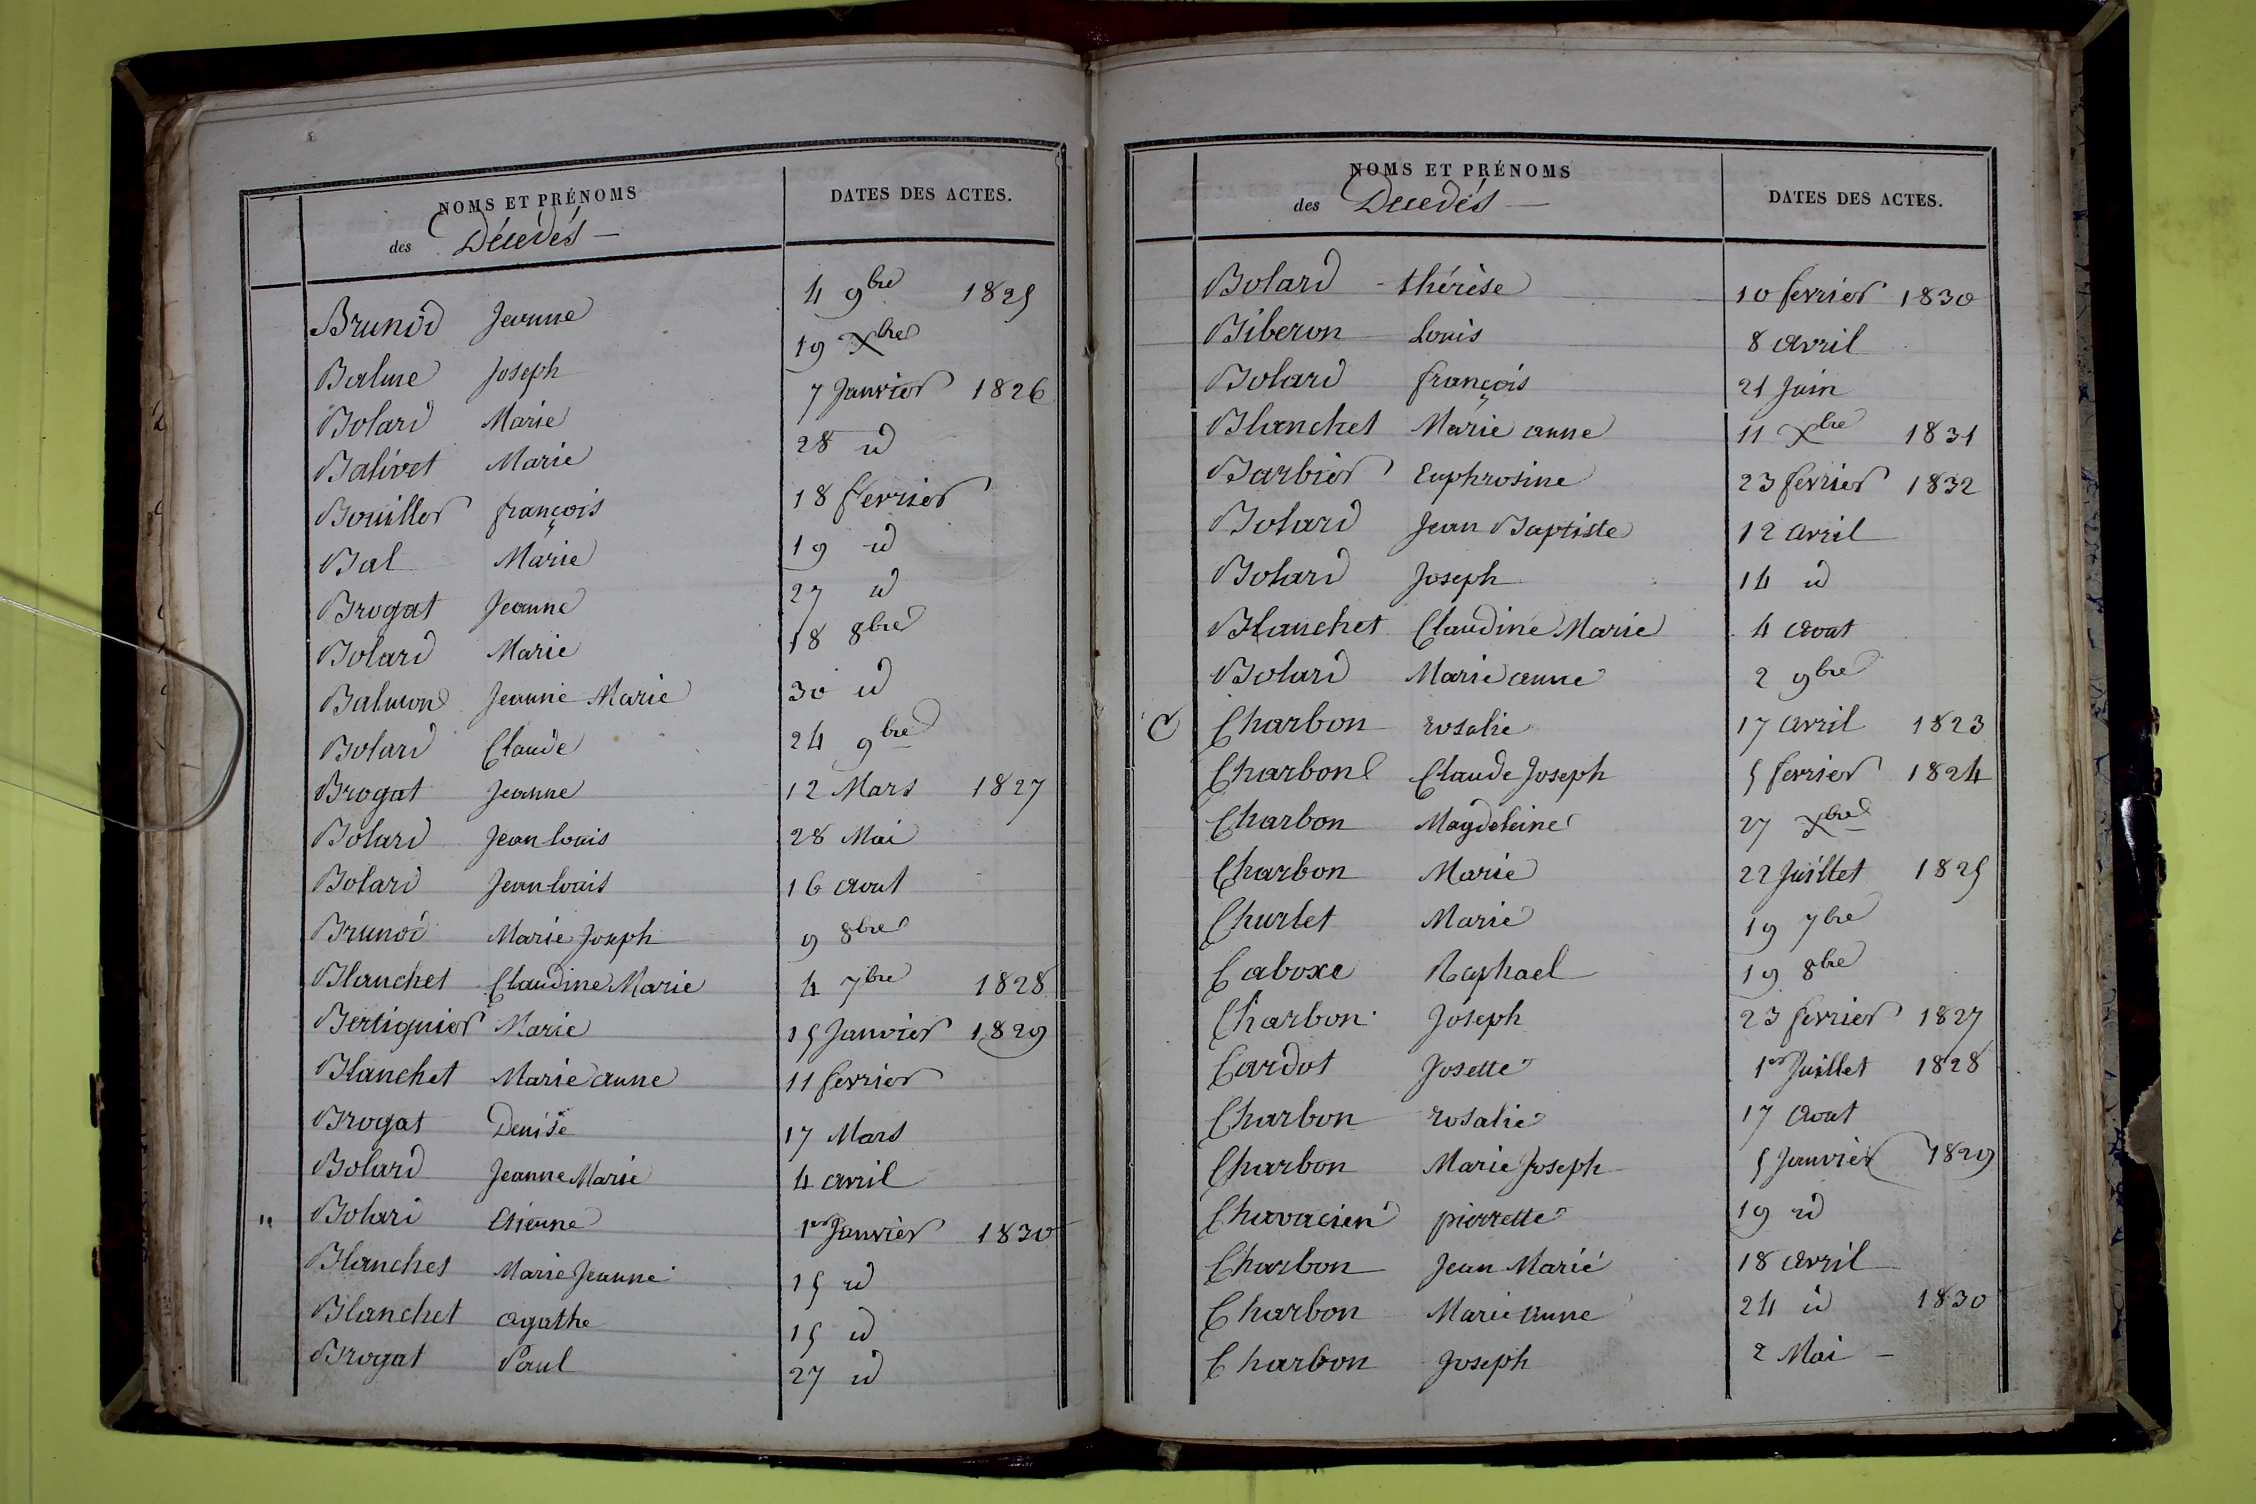 NOMS ET PRÉNOMS
des Décédés —
DATES DES ACTES.
Brunod Jeanne 4 9bre 1825
Balme Joseph 19 Xbre
Bolard Marie 7 Janvier 1826
Balivet Marie 28 id
Bouiller françois 18 fevrier
Bal Marie 19 id
Brogat Jeanne 27 id
Bolard Marie 18 8bre
Balmond Jeanne Marie 30 id
Bolard Claude 24 9bre
Brogat Jeanne 12 Mars 1827
Bolard Jean louis 28 Mai
Bolard Jean louis 16 aout
Brunod Marie Joseph 9 8bre
Blanchet Claudine Marie 4 7bre 1828
Bertiguier Marie 15 Janvier 1829
Blanchet Marie anne 11 fevrier
Brogat Denise 17 Mars
Bolard Jeanne Marie 4 avril
" Bolard Etienne 1er Janvier 1830
Blanches Marie Jeanne 15 id
Blanchet agathe 15 id
Brogat Paul 27 id
NOMS ET PRÉNOMS
des Decedés —
DATES DES ACTES.
Bolard thérèse 10 fevrier 1830
Biberon Louis 8 avril
Bolard françois 21 Juin
Blanchet Marie anne 11 Xbre 1831
Barbier Euphrosine 23 fevrier 1832
Bolard Jean Baptiste 12 avril
Bolard Joseph 14 id
Blanchet Claudine Marie 4 aout
Bolard Marie anne 2 9bre
C Charbon rosalie 17 avril 1823
Charbon Claude Joseph 5 fevrier 1824
Charbon Magdeleine 27 Xbre
Charbon Marie 22 Juillet 1825
Churlet Marie 19 7bre
Caboxe Raphael 19 8bre
Charbon Joseph 23 fevrier 1827
Cardot Josette 1er Juillet 1828
Charbon rosalie 17 aout
Charbon Marie Joseph 5 Janvier 1829
Chavacien pierrette 19 id
Charbon Jean Marie 18 avril
Charbon Marie anne 24 id 1830
Charbon Joseph 2 Mai —